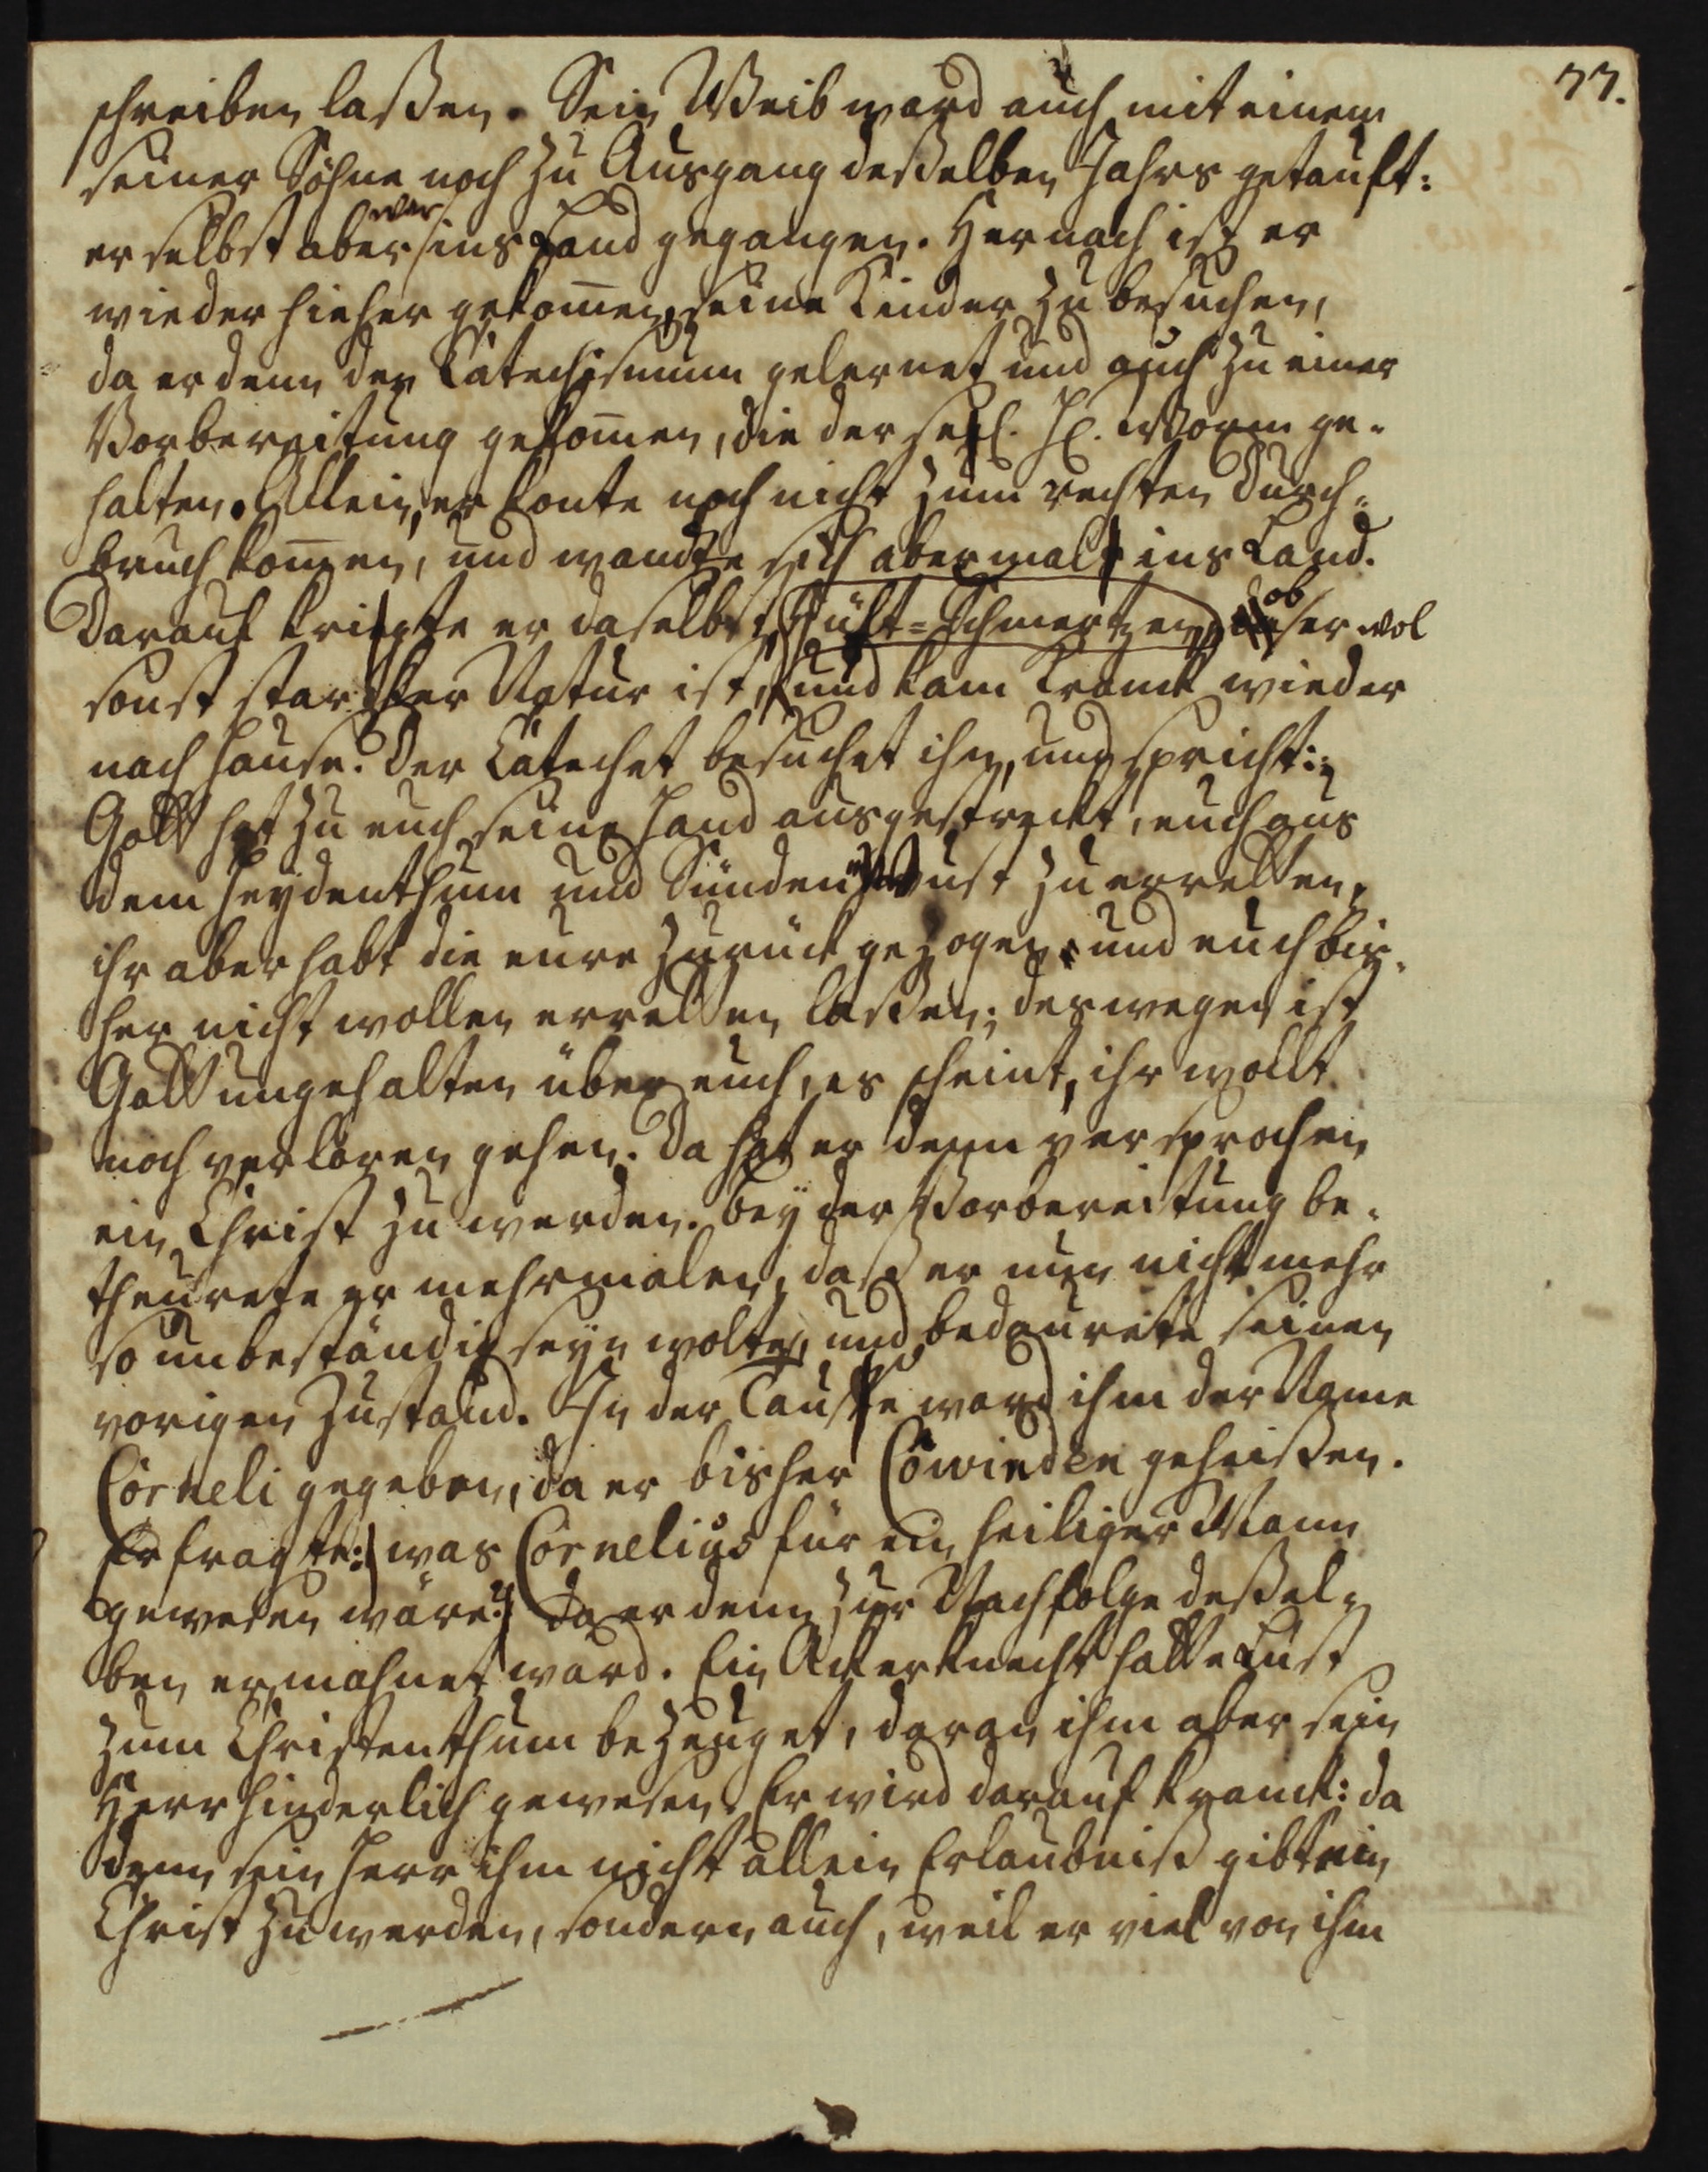 77.
schreiben laßen. Sein Weib ward auch mit einem
seiner Söhne noch zu Ausgang deßelben Jahrs getauft:
er selbst aber war ins Land gegangen. Hernach ist er
wieder hieher gekom̄en, seine Kinder zu besuchen,
da er denn den Catechismum gelernet und auch zu einer
Vorbereitung gekom̄en, die der sel. H. Worm ge-
halten. Allein, er konte noch nicht zum rechten Durch-
bruch kom̄en, und wandte sich abermal ins Land.
Darauf kriegte er daselbst Hüft-Schmertzen, ob er wol
sonst starcker Natur ist, und kam kranck wieder
nach Hause. Der Catechet besuchet ihn, und spricht:
Gott hat zu euch seine Hand ausgestreckt, euch aus
dem Heydenthum und Sünden Wust zu erretten,
ihr aber habt die eure zurück gezogen und euch bis-
her nicht wollen erretten laßen; deswegen ist
Gott ungehalten über euch, es scheint, ihr wollt
noch verloren gehen. Da hat er denn versprochen
ein Christ zu werden. Bey der Vorbereitung be-
theurete er mehrmalen, daß er nun nicht mehr
so unbeständig seyn wolte, und bedaurete seinen
vorigen Zustand. In der Taufe ward ihm der Name
Corneli gegeben, da er bisher Cowinden geheißen.
Er fragte: was Cornelius für ein heiliger Mann
gewesen wäre? Da er denn zur Nachfolge deßel-
ben ermahnet ward. Ein Ackerknecht hatte Lust
zum Christenthum bezeuget, daran ihm aber sein
Herr hinderlich gewesen. Er wird darauf kranck: da
denn sein Herr ihm nicht allein Erlaubniß gibt ein
Christ zu werden, sondern auch, weil er viel von ihm